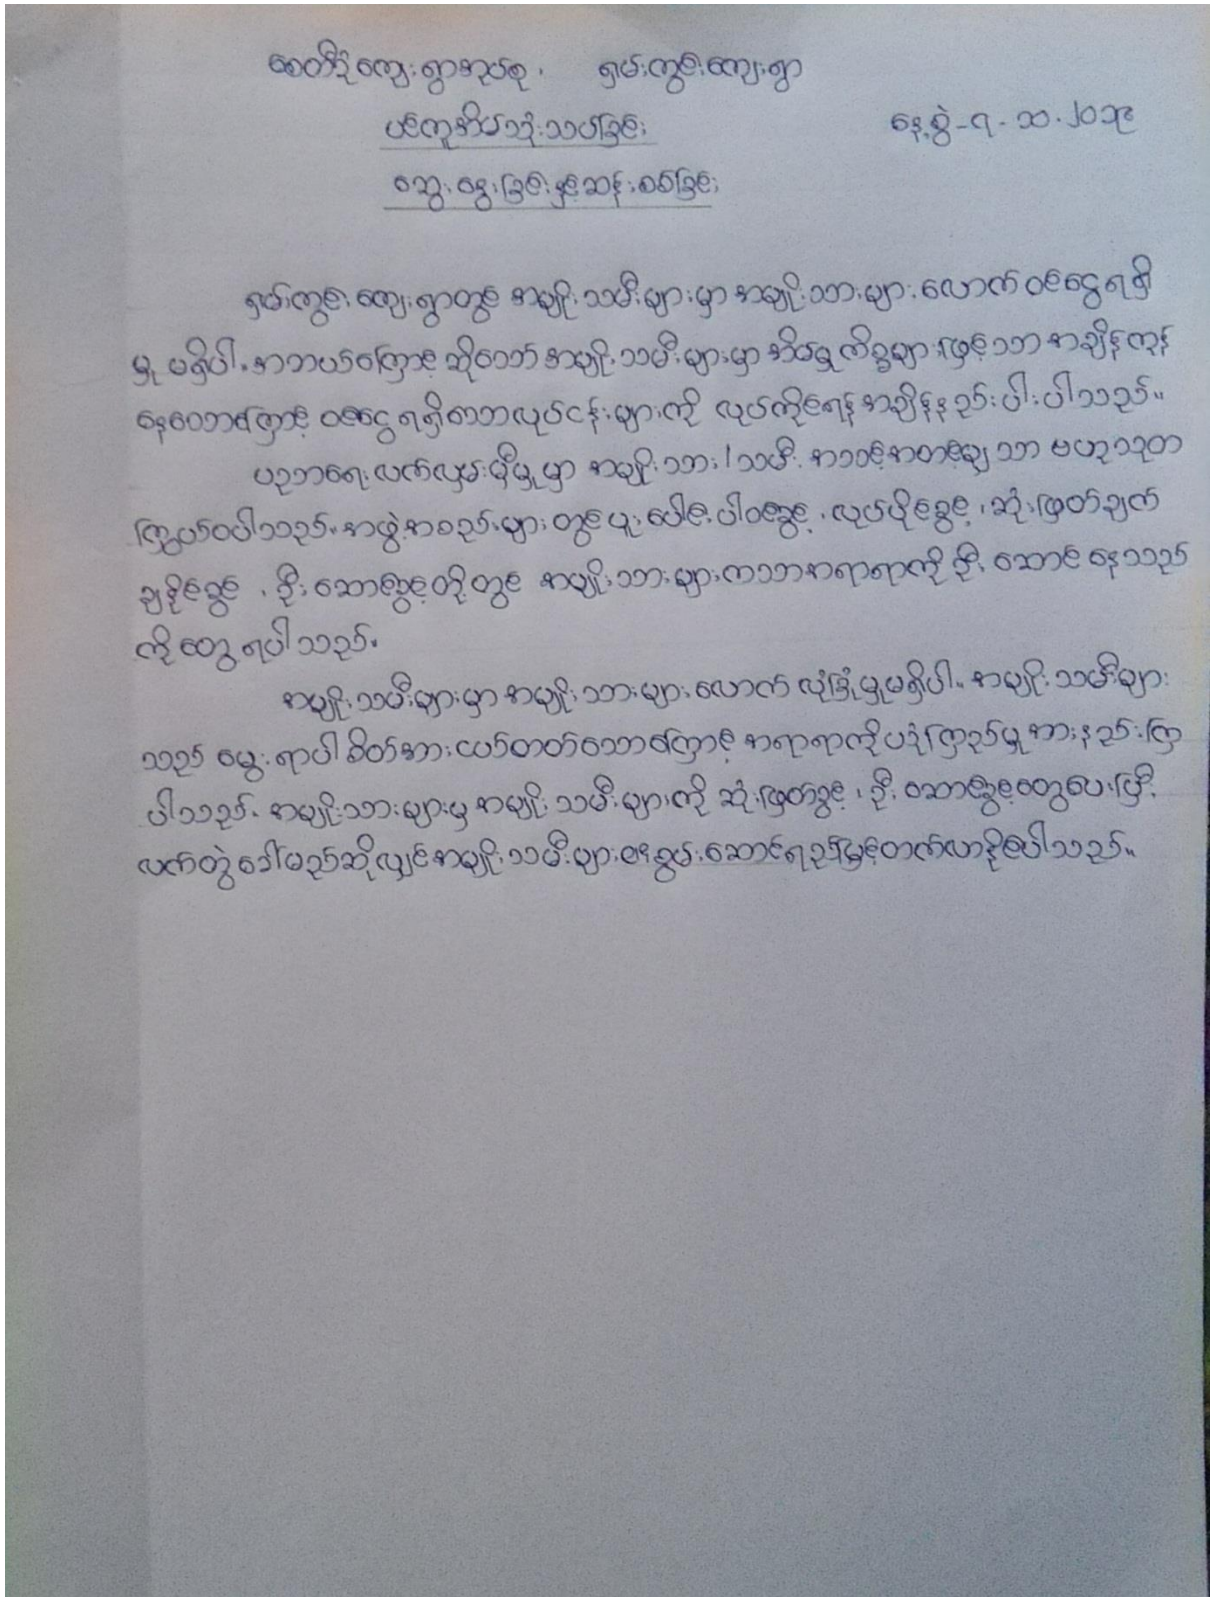 စေတီဒုံကျေးရွာအုပ်စု ၊ ရှမ်းကွင်းကျေးရွာ
ပင်ကူအိမ်သုံးသပ်ခြင်း နေ့စွဲ - ၇ - ၁၁ - ၂၀၁၄
ဆွေးနွေးခြင်းနှင့်ဆန်းစစ်ခြင်း
ရှမ်းကွင်းကျေးရွာတွင် အမျိုးသမီးများမှာ အမျိုးသားများလောက် ဝင်ငွေရရှိ
မှု မရှိပါ။ အဘယ်ကြောင့် ဆိုသော် အမျိုးသမီးများမှာ အိမ်မှုကိစ္စများဖြင့်သာ အချိန်ကုန်
နေသောကြောင့် ဝင်ငွေရရှိသောလုပ်ငန်းများကို လုပ်ကိုင်ရန် အချိန်နည်းပါးပါသည်။
ပညာရေးလက်လှမ်းမှီမှုမှာ အမျိုးသား/သမီး အသင့်အတင့်မျှသာ ဗဟုသုတ
ကြွယ်ဝပါသည်။ အဖွဲ့အစည်းများတွင် ပူးပေါင်းပါဝင်ခွင့် ၊ လုပ်ပိုင်ခွင့် ၊ ဆုံးဖြတ်ချက်
ချနိုင်ခွင့် ၊ ဦးဆောင်ခွင့်တို့တွင် အမျိုးသားများကသာအရာရာကို ဦးဆောင်နေသည်
ကို တွေ့ရပါသည်။
အမျိုးသမီးများမှာ အမျိုးသားများလောက် လုံခြုံမှုမရှိပါ။ အမျိုးသမီးများ
သည် မွေးရာပါ စိတ်အားငယ်တတ်သောကြောင့် အရာရာကိုယုံကြည်မှုအားနည်းကြ
ပါသည်။ အမျိုးသားများမှ အမျိုးသမီးများကို ဆုံးဖြတ်ခွင့် ၊ ဦးဆောင်ခွင့်တွေပေးပြီး
လက်တွဲခေါ်မည်ဆိုလျှင်အမျိုးသမီးများ၏စွမ်းဆောင်ရည်မြှင့်တက်လာနိုင်ပါသည်။